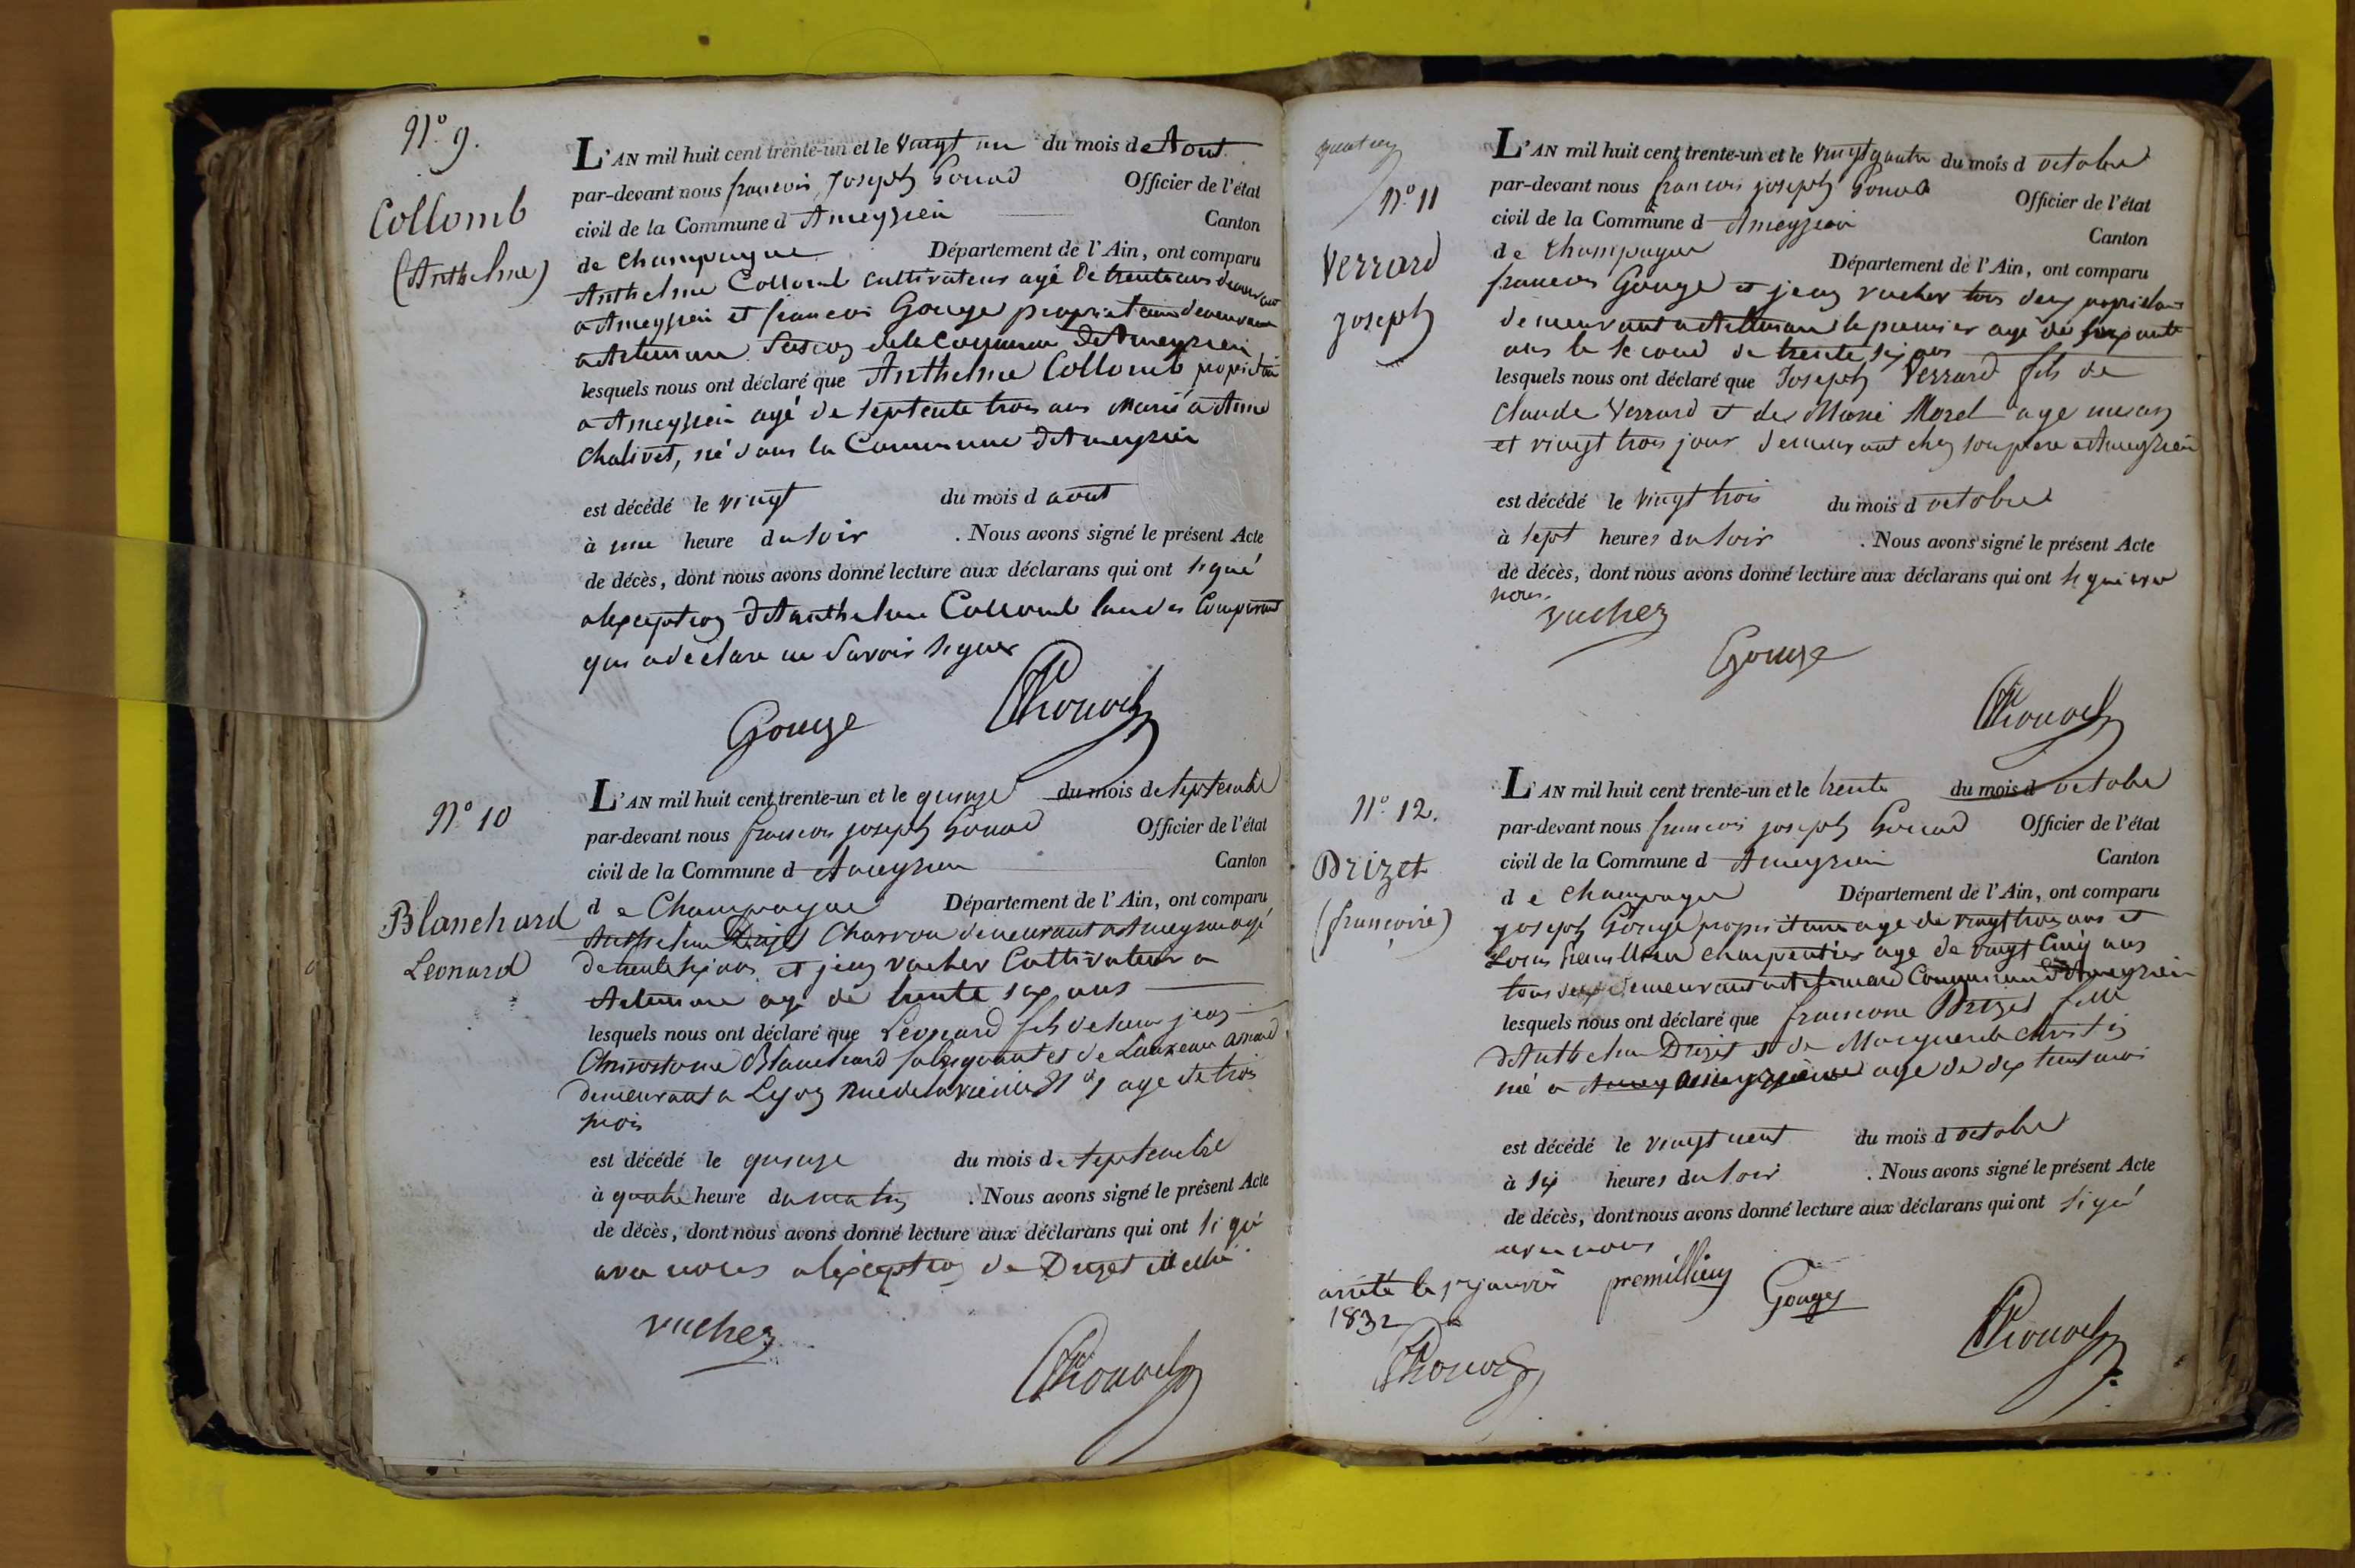 N° 9.
Collomb
(Anthelme)
L'AN mil huit cent trente-un et le vingt un du mois de Aout
par-devant nous francois Joseph Gonod Officier de l'état
civil de la Commune d Ameyzieu Canton
de Champagne Département de l'Ain, ont comparu
Anthelme Collomb cultivateur agé de trente ans demeurant
a Ameyzieu et francois Gouge proprietaire demeurant
a Artemare Section de la Commune d'Ameyzieu
lesquels nous ont déclaré que Anthelme Collomb proprietaire
a Ameyzieu agé de septente trois ans Marié a Anne
Chalivet, né dans la Commune d'Ameyzieu
est décédé le vingt du mois d aout
à une heure du soir . Nous avons signé le présent Acte
de décès, dont nous avons donné lecture aux déclarans qui ont signé
alexception d'Anthelme Collomb lun des Comparant
qui a declare ne Savoir signer
Gouge
N° 10
Blanchard
Leonard
L'AN mil huit cent trente-un et le quinze du mois de septembre
par-devant nous francois joseph Gonod Officier de l'état
civil de la Commune d Ameyzieu Canton
d e Champagne Département de l'Ain, ont comparu
Anthelme Drizet Charron demeurant a Ameyzieu agé
de trente six ans et jean vucher Cultivateur a
Artemare agé de trente six ans
lesquels nous ont déclaré que Léonard fils de jean
Chrisostome Blanchard fabriquant et de
demeurant a Lyon Rue de la vieille N° 1 age de trois
mois
est décédé le quinze du mois de septembre
à quatre heure du matin . Nous avons signé le présent Acte
de décès, dont nous avons donné lecture aux déclarans qui ont signé
avec nous alexception de Drizet
vucher
N° 11
Verrard
joseph
L'AN mil huit cent trente-un et le vingt quatre du mois d octobre
par-devant nous francois joseph Gonod Officier de l'état
civil de la Commune d Ameyzieu Canton
de Champagne Département de l'Ain, ont comparu
francois Gouge et jean vucher tous deux proprietaires
demeurant a Artemare le premier agé de soixante
ans le second de trente six ans
lesquels nous ont déclaré que Joseph Verrard fils de
Claude Verrard et de Marie Morel age un an
et vingt trois jour demeurant chez son pere a Ameyzieu
est décédé le vingt trois du mois d octobre
à sept heures du soir . Nous avons signé le présent Acte
de décès, dont nous avons donné lecture aux déclarans qui ont signé avec
nous.
vucher
Gouge
N° 12.
Drizet
(françoise)
L'AN mil huit cent trente-un et le trente du mois d octobre
par-devant nous francois joseph Gonod Officier de l'état
civil de la Commune d Ameyzieu Canton
d e Champagne Département de l'Ain, ont comparu
joseph Gouge proprietaire age de vingt trois ans et
Louis charpentier age de vingt cinq ans
tous deux demeurant a Artemare Commune d'Ameyzieu
lesquels nous ont déclaré que francoise Drizet fille
d'Anthelme Drizet et de Marguerite Christin
né a Ameyzieu age de dix huit mois
est décédé le vingt neuf du mois d octobre
à six heures du soir . Nous avons signé le présent Acte
de décès, dont nous avons donné lecture aux déclarans qui ont signé
avec nous
arrêté le 1er janvier
1832
premillieu
Gouge